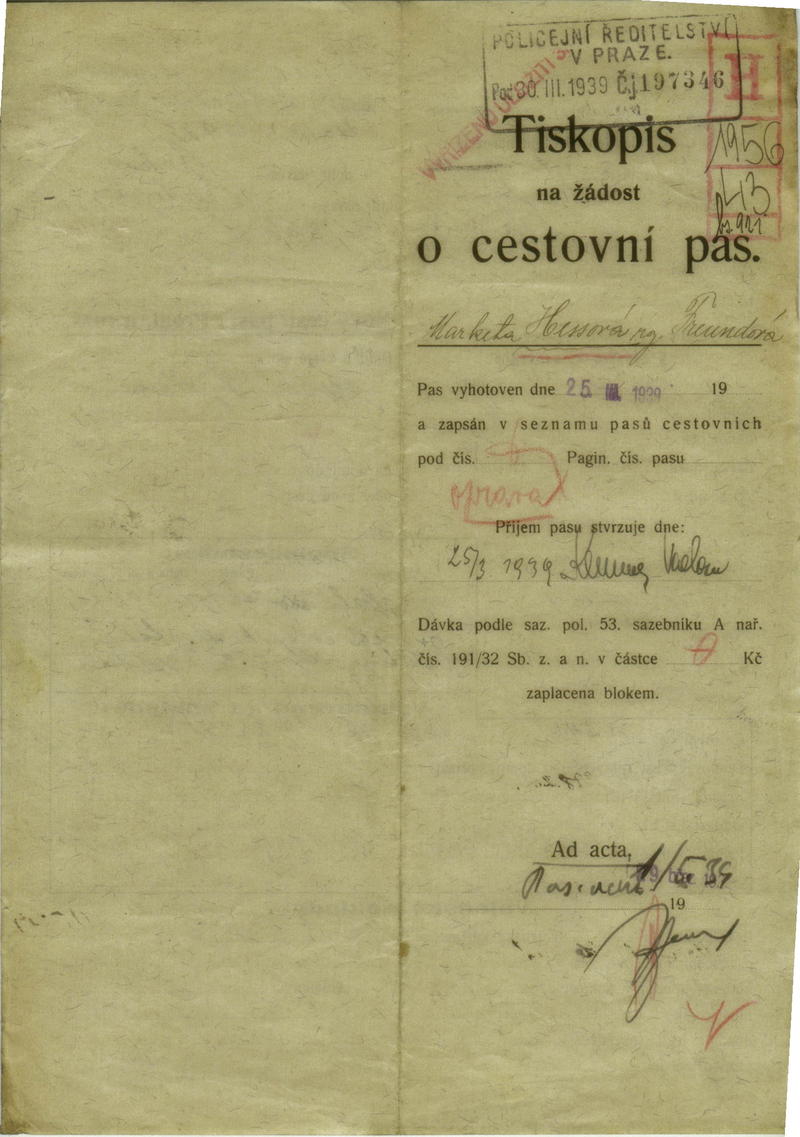 POLICEJNÍ ŘEDITELSTVÍ
V PRAZE.
30. III. 1939 Čj 197346
H
1956
43
Tiskopis
na žádost
o cestovní pas.
Marketa Hessová rg. Freundová
Pas vyhotoven dne 25. III. 1939 19
a zapsán v seznamu pasů cestovních
pod čís. Pagin. čís. pasu
oprava
Příjem pasu stvrzuje dne:
25/3 1939
Dávka podle saz. pol. 53. sazebníku A nař.
čís. 191/32 Sb. z. a n. v částce Kč
zaplacena blokem.
Ad acta,
19